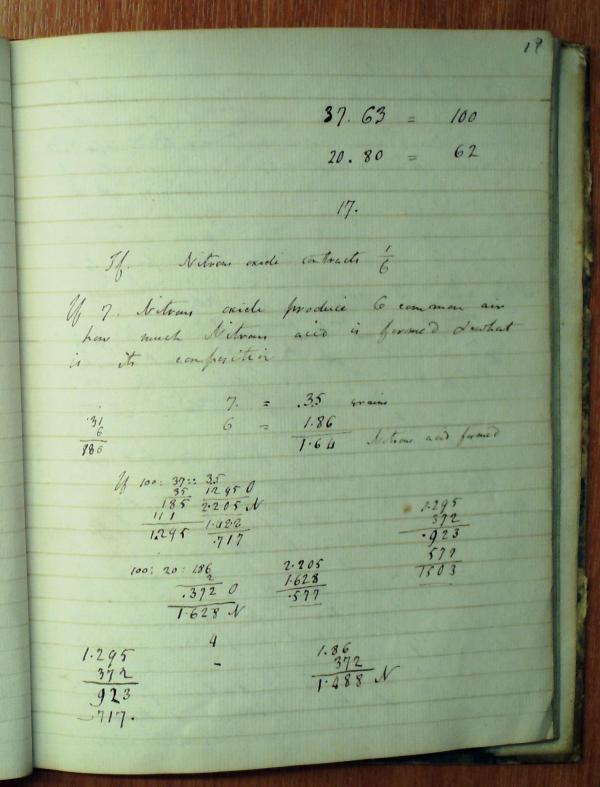 19
37.63 = 100
20.80 = 62
17.
If. Nitrous oxide contracts 1/6
If 7. Nitrous oxide produce 6 common air
how much Nitrous acid is formed & what
is its composition
7. = .35 grains
6 = 1.86
1.64 Nitrous acid formed
.31
6
186
If 100: 37:: 35
35
185
111
1.295
1295 O
2.205 N
1.488
.717
1.295
372
.923
577
1503
100: 20: 186
2
.372 O
1.628 N
2.205
1.628
.577
4
-
1.295
372
923
717.
1.86
372
1.488 N